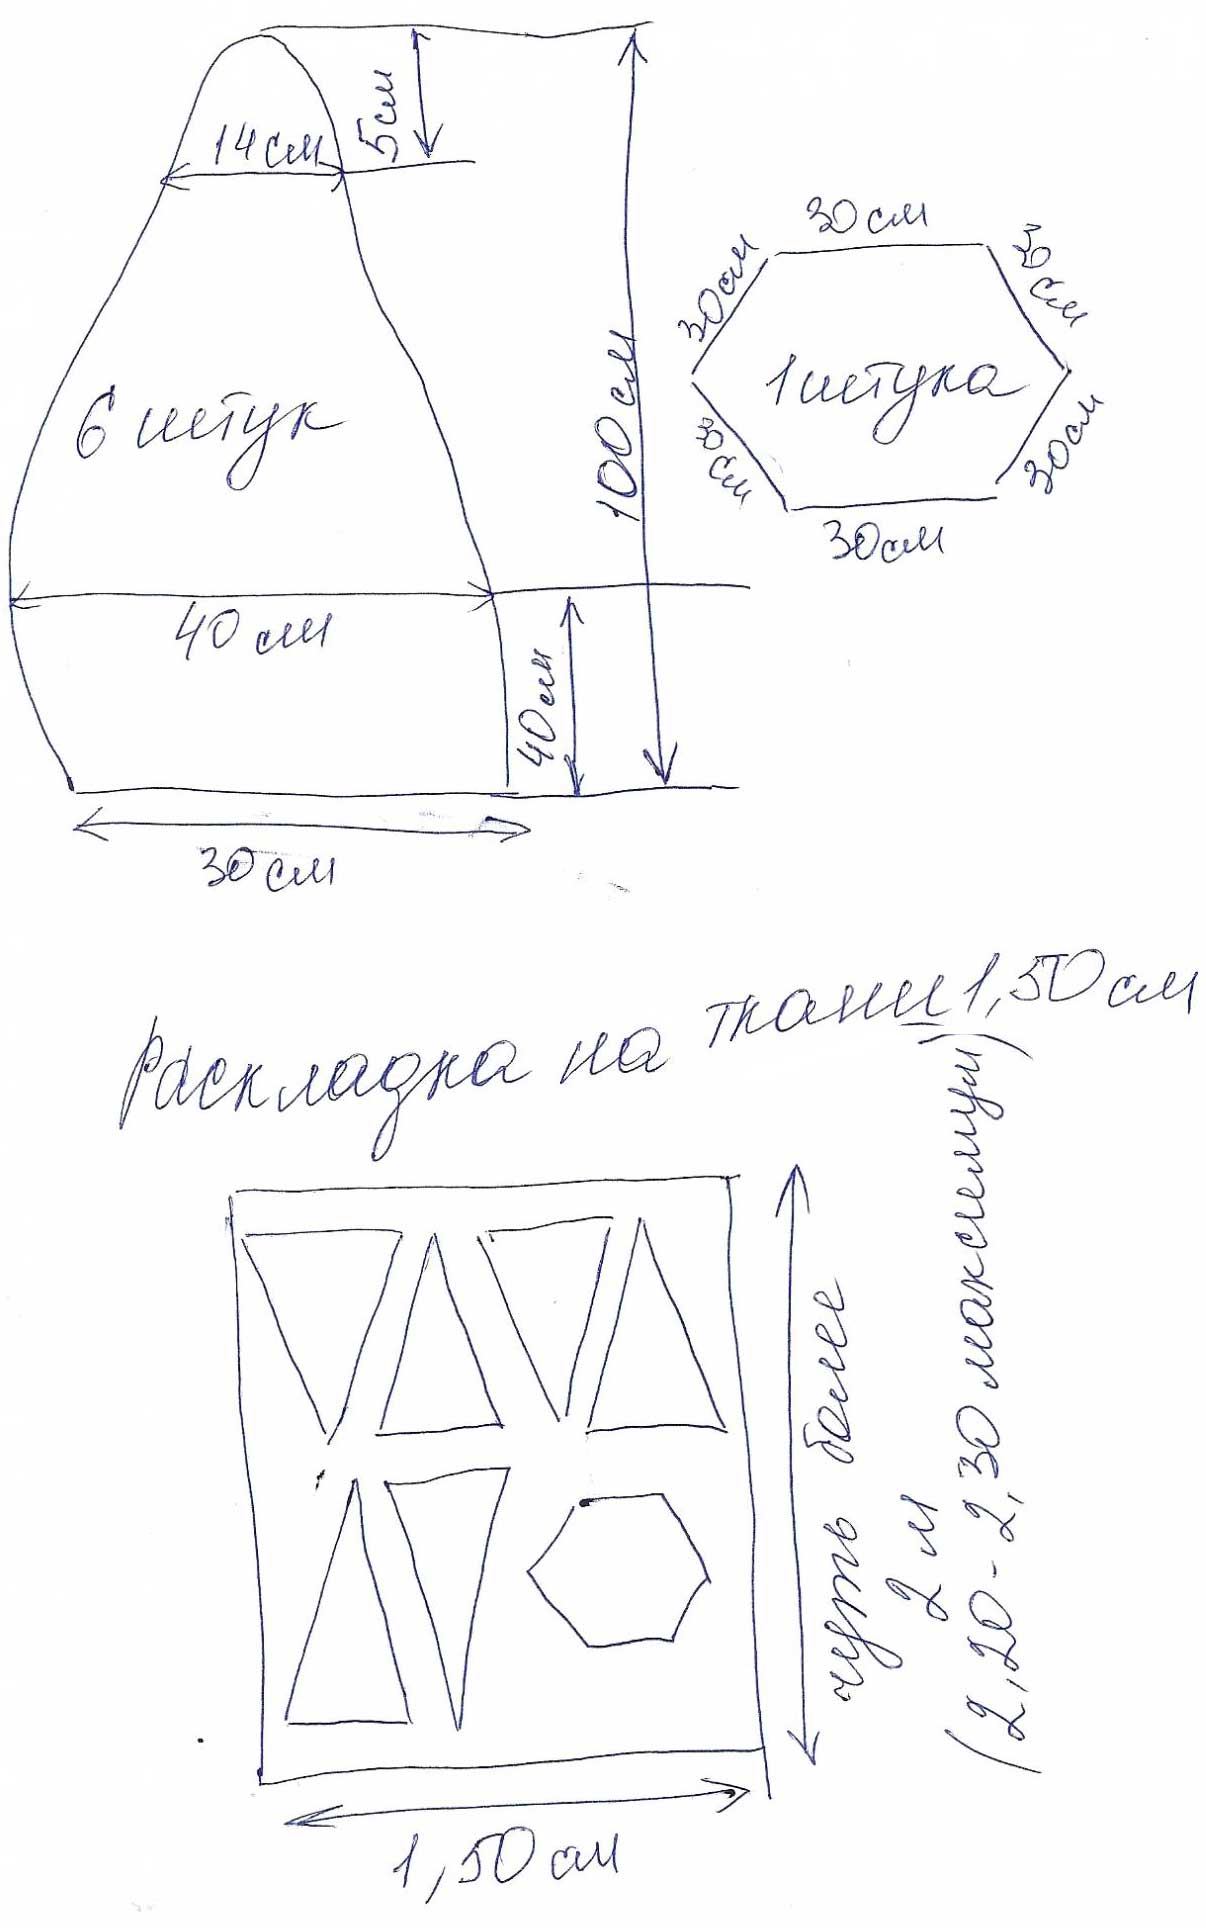 5см
14см
6 штук
100см
40см
40см
30см
30см
30см
30 см
1штука
30 см
30см
30см
Раскладка на ткани 1,50см
чуть более
2 м
(2,20-2,30 максимум)
1,50см